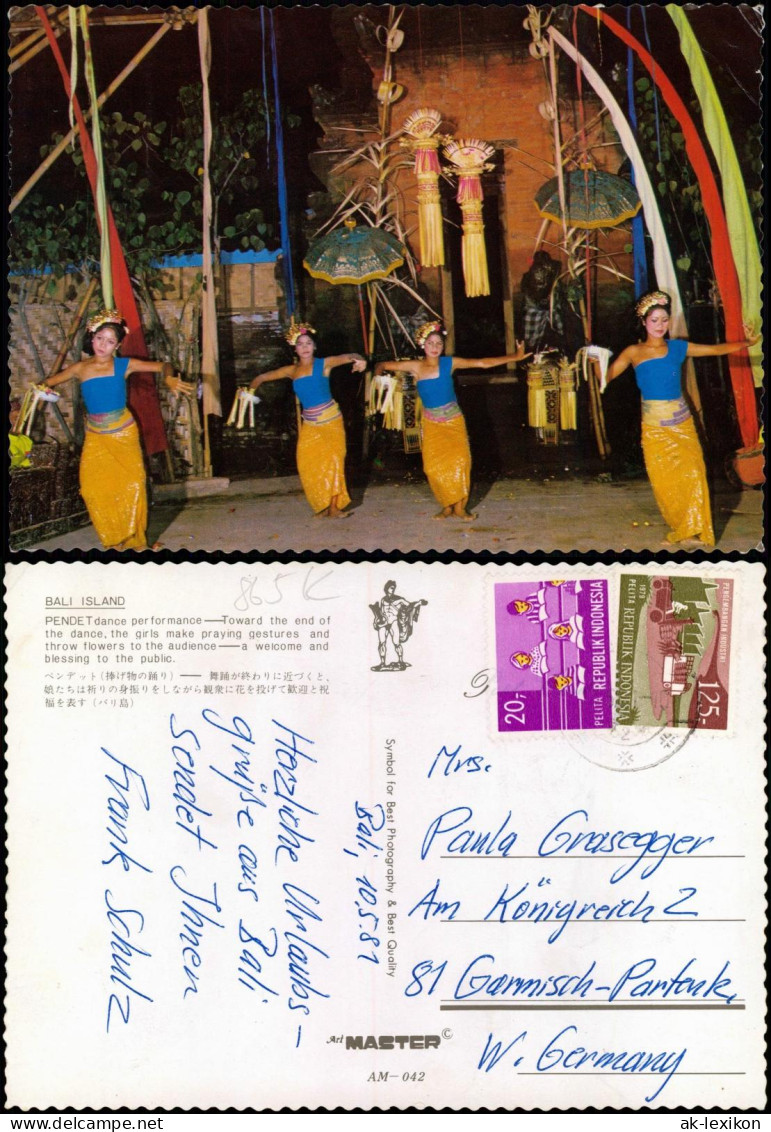 BALI ISLAND
PENDET dance performance — Toward the end of
the dance, the girls make praying gestures and
throw flowers to the audience — a welcome and
blessing to the public.
ペンデット (捧げ物の踊り) —— 舞踊が終わりに近づくと、
娘たちは祈りの身振りをしながら観衆に花を投げて歓迎と祝
福を表す (バリ島)
865K
Bali, 10.5.81
Herzliche Urlaubs-
grüße aus Bali
sendet Ihnen
Frank Schulz
Symbol for Best Photography & Best Quality
Art MASTER ©
AM—042
20,-
PELITA REPUBLIK INDONESIA
1979
PELITA REPUBLIK INDONESIA
PENGEMBANGAN INDUSTRI
125,-
Mrs.
Paula Grasegger
Am Königreich 2
81 Garmisch-Partenk.
W. Germany
© ak-ansichtskarten.de
ak-lexikon.com